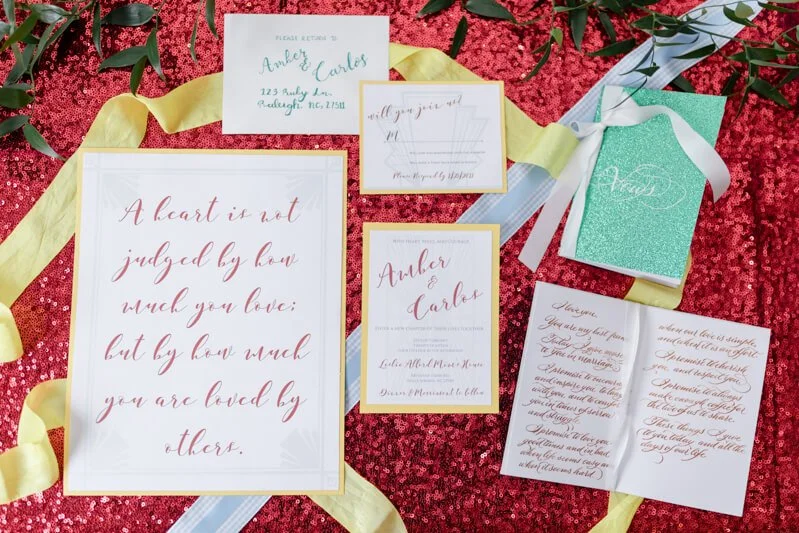 PLEASE RETURN TO
Amber
&
Carlos
123 Ruby Ln.
Raleigh, NC, 27511
will you join us?
M
Please Respond by
A heart is not
judged by how
much you love;
but by how much
you are loved by
others.
WITH HEART, MIND, AND COURAGE
Amber
&
Carlos
Leslie Alford Mims House
Dinner & Merriment to follow
Vows
I love you.
You are my best friend.
Today I give myself
to you in marriage.
I promise to encourage
and inspire you, to laugh
you, and to comfort
you in times of sorrow
and struggle.
I promise to love you
good times and in bad,
when life seems easy and
when it seems hard,
when our love is simple,
and when it is an effort.
I promise to cherish
you, and respect you.
I promise to always
make enough coffee for
the two of us to share.
These things I give
to you today, and all the
days of our life.